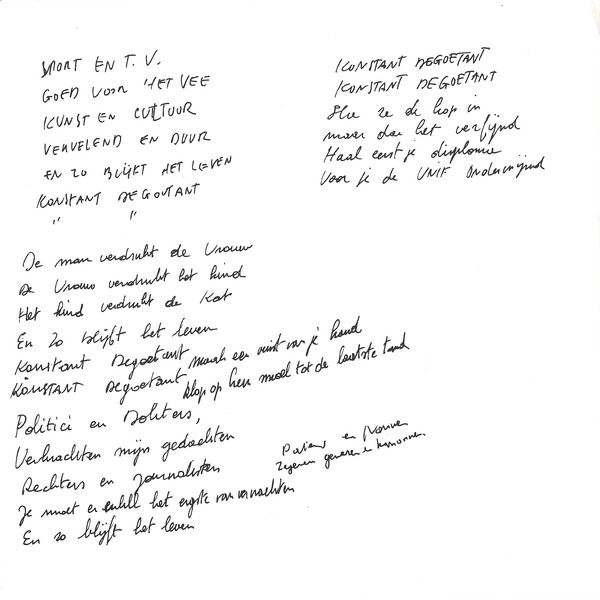 SPORT EN T.V.
GOED VOOR HET VEE
KUNST EN CULTUUR
VERVELEND EN DUUR
EN ZO BLIJKT HET LEVEN
KONSTANT DEGOUTANT
" "
KONSTANT DEGOETANT
KONSTANT DEGOETANT
Hoe ze de kop in
maar dan het verfijnd
Haal eerst je diploma
Voor je de UNIF ondermijnd
De man verdrukt de Vrouw
De Vrouw verdrukt het kind
Het kind verdrukt de Kat
En zo blijft het leven
Konstant Degoetant
KONSTANT Degoetant
maak een vuist van je hand
klop op hun muil tot de laatste tand
Politici en Dokters,
Verkrachten mijn gedachten
Rechters en Journalisten
Je moet er enkel het ergste van verwachten
En zo blijft het leven
en Nonnen